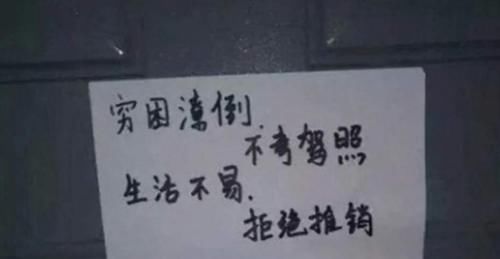 穷困潦倒
不考驾照
生活不易.
拒绝推销